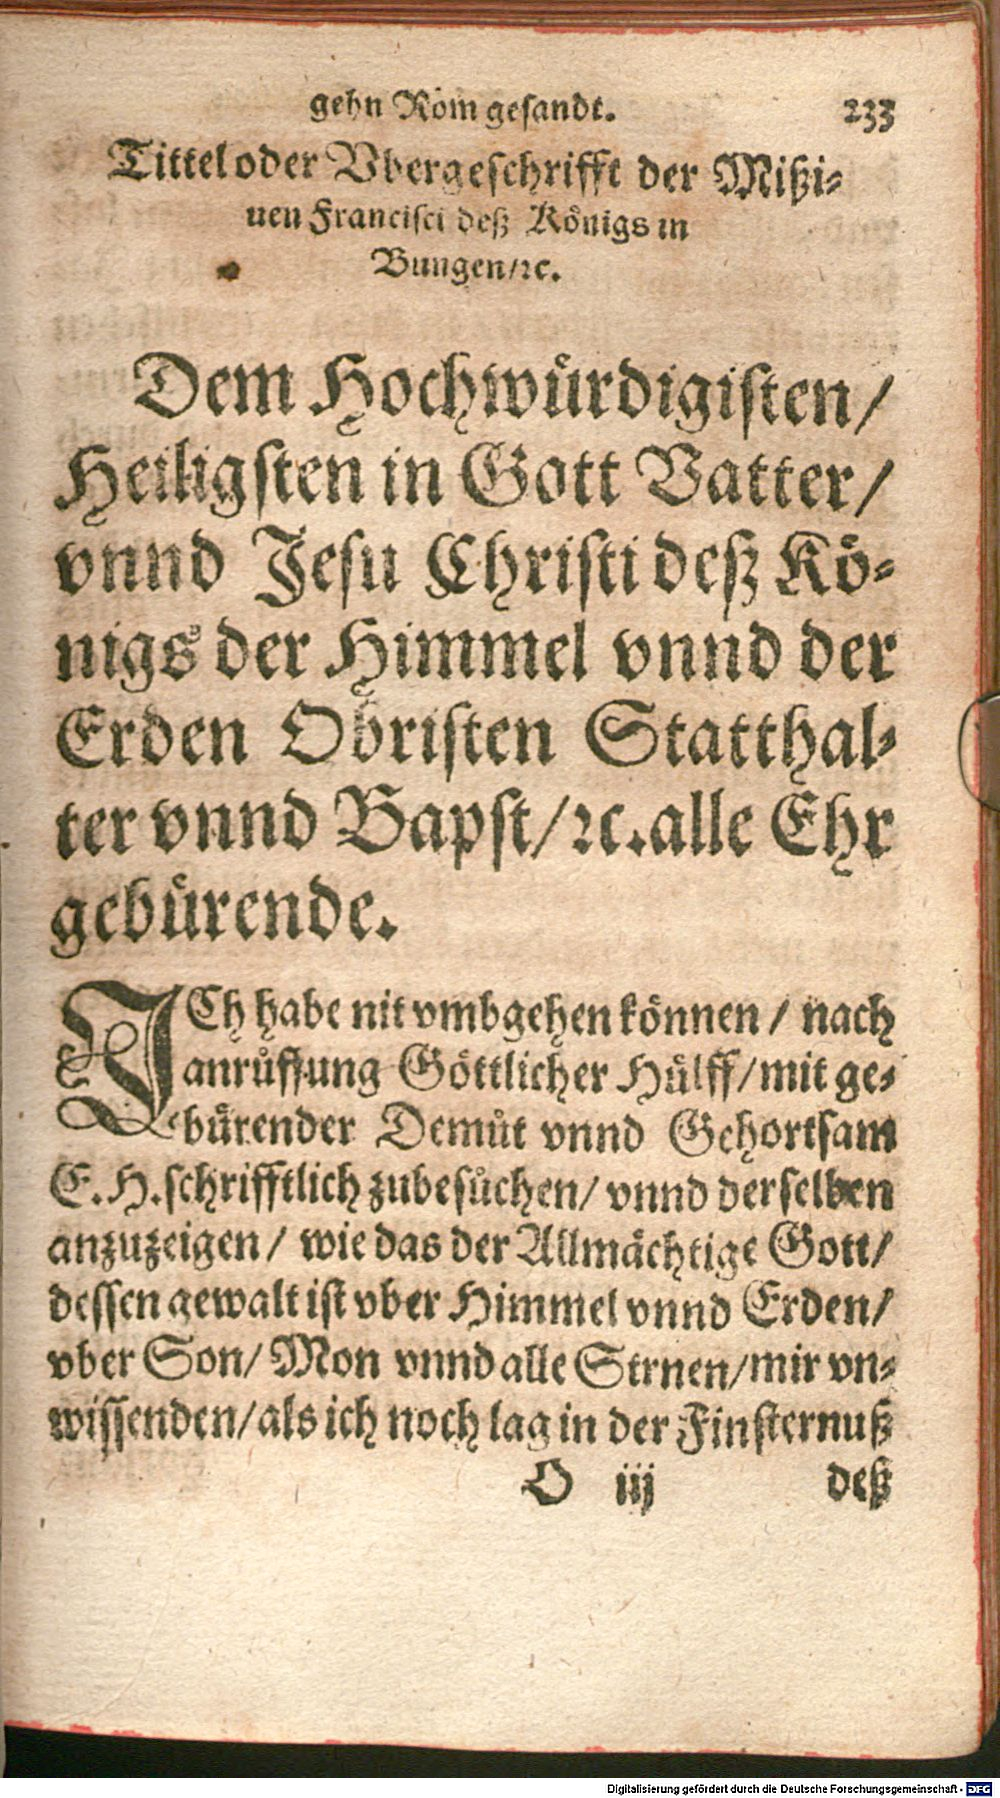 gehn Rom gesandt. 233
Tittel oder Vbergeschrifft der Mißi-
uen Francisci deß Königs in
Bungen/ꝛc.
Dem Hochwürdigisten/
Heiligsten in Gott Vatter/
vnnd Jesu Christi deß Kö-
nigs der Himmel vnnd der
Erden Obristen Statthal-
ter vnnd Bapst/ꝛc. alle Ehr
gebürende.
ICh habe nit vmbgehen können / nach
anrůffung Göttlicher Hülff/mit ge-
bürender Demůt vnnd Gehortsam
E. H. schrifftlich zubesůchen/ vnnd derselben
anzuzeigen/ wie das der Allmächtige Gott/
dessen gewalt ist vber Himmel vnnd Erden/
vber Son/ Mon vnnd alle Strnen/mir vn-
wissenden/als ich noch lag in der Finsternuß
O iij deß
Digitalisierung gefördert durch die Deutsche Forschungsgemeinschaft - DFG